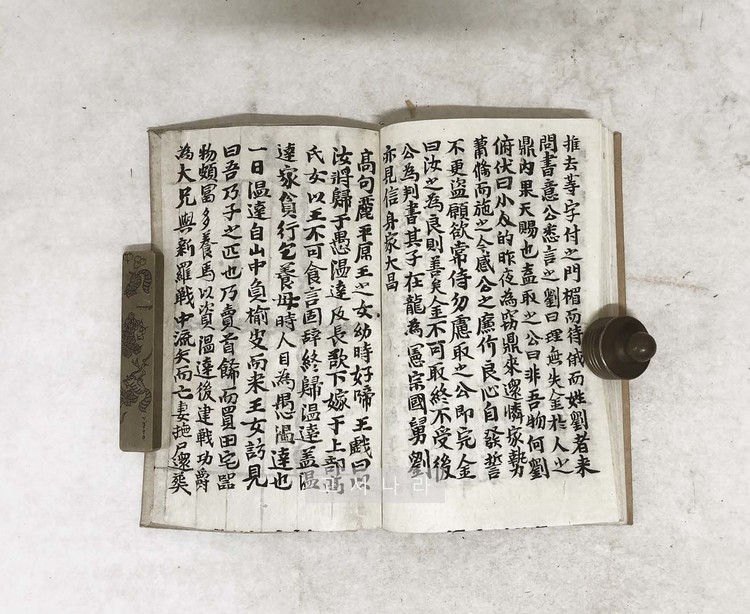 推去等字付之門楣而待俄而姓劉者来
問書意公悉言之劉曰理無失金於人之
鼎內果天賜也盍取之公曰非吾物何劉
俯伏曰小人的昨夜為竊鼎来還憐家勢
蕭條而施之今感公之廉竹良心自發誓
不更盜願欲常侍勿慮取之公即完金
曰汝之為良則善矣金不可取終不受後
公為判書其子在龍為憲宗國舅劉
亦見信身家大昌
高句麗平原王之女幼時好啼王戲曰
汝將歸于愚溫達及長欲下嫁于上部高
氏女以王不可食言固辞終歸溫達盖溫
達家貧行乞養母時人目為愚溫達也
一日溫達自山中負榆皮而来王女訪見
曰吾乃子之匹也乃賣首飾而買田宅器
物頗富多養馬以資溫達後建戰功爵
為大兄與新羅戰中流矢而亡妻拖尸還葬
서나라